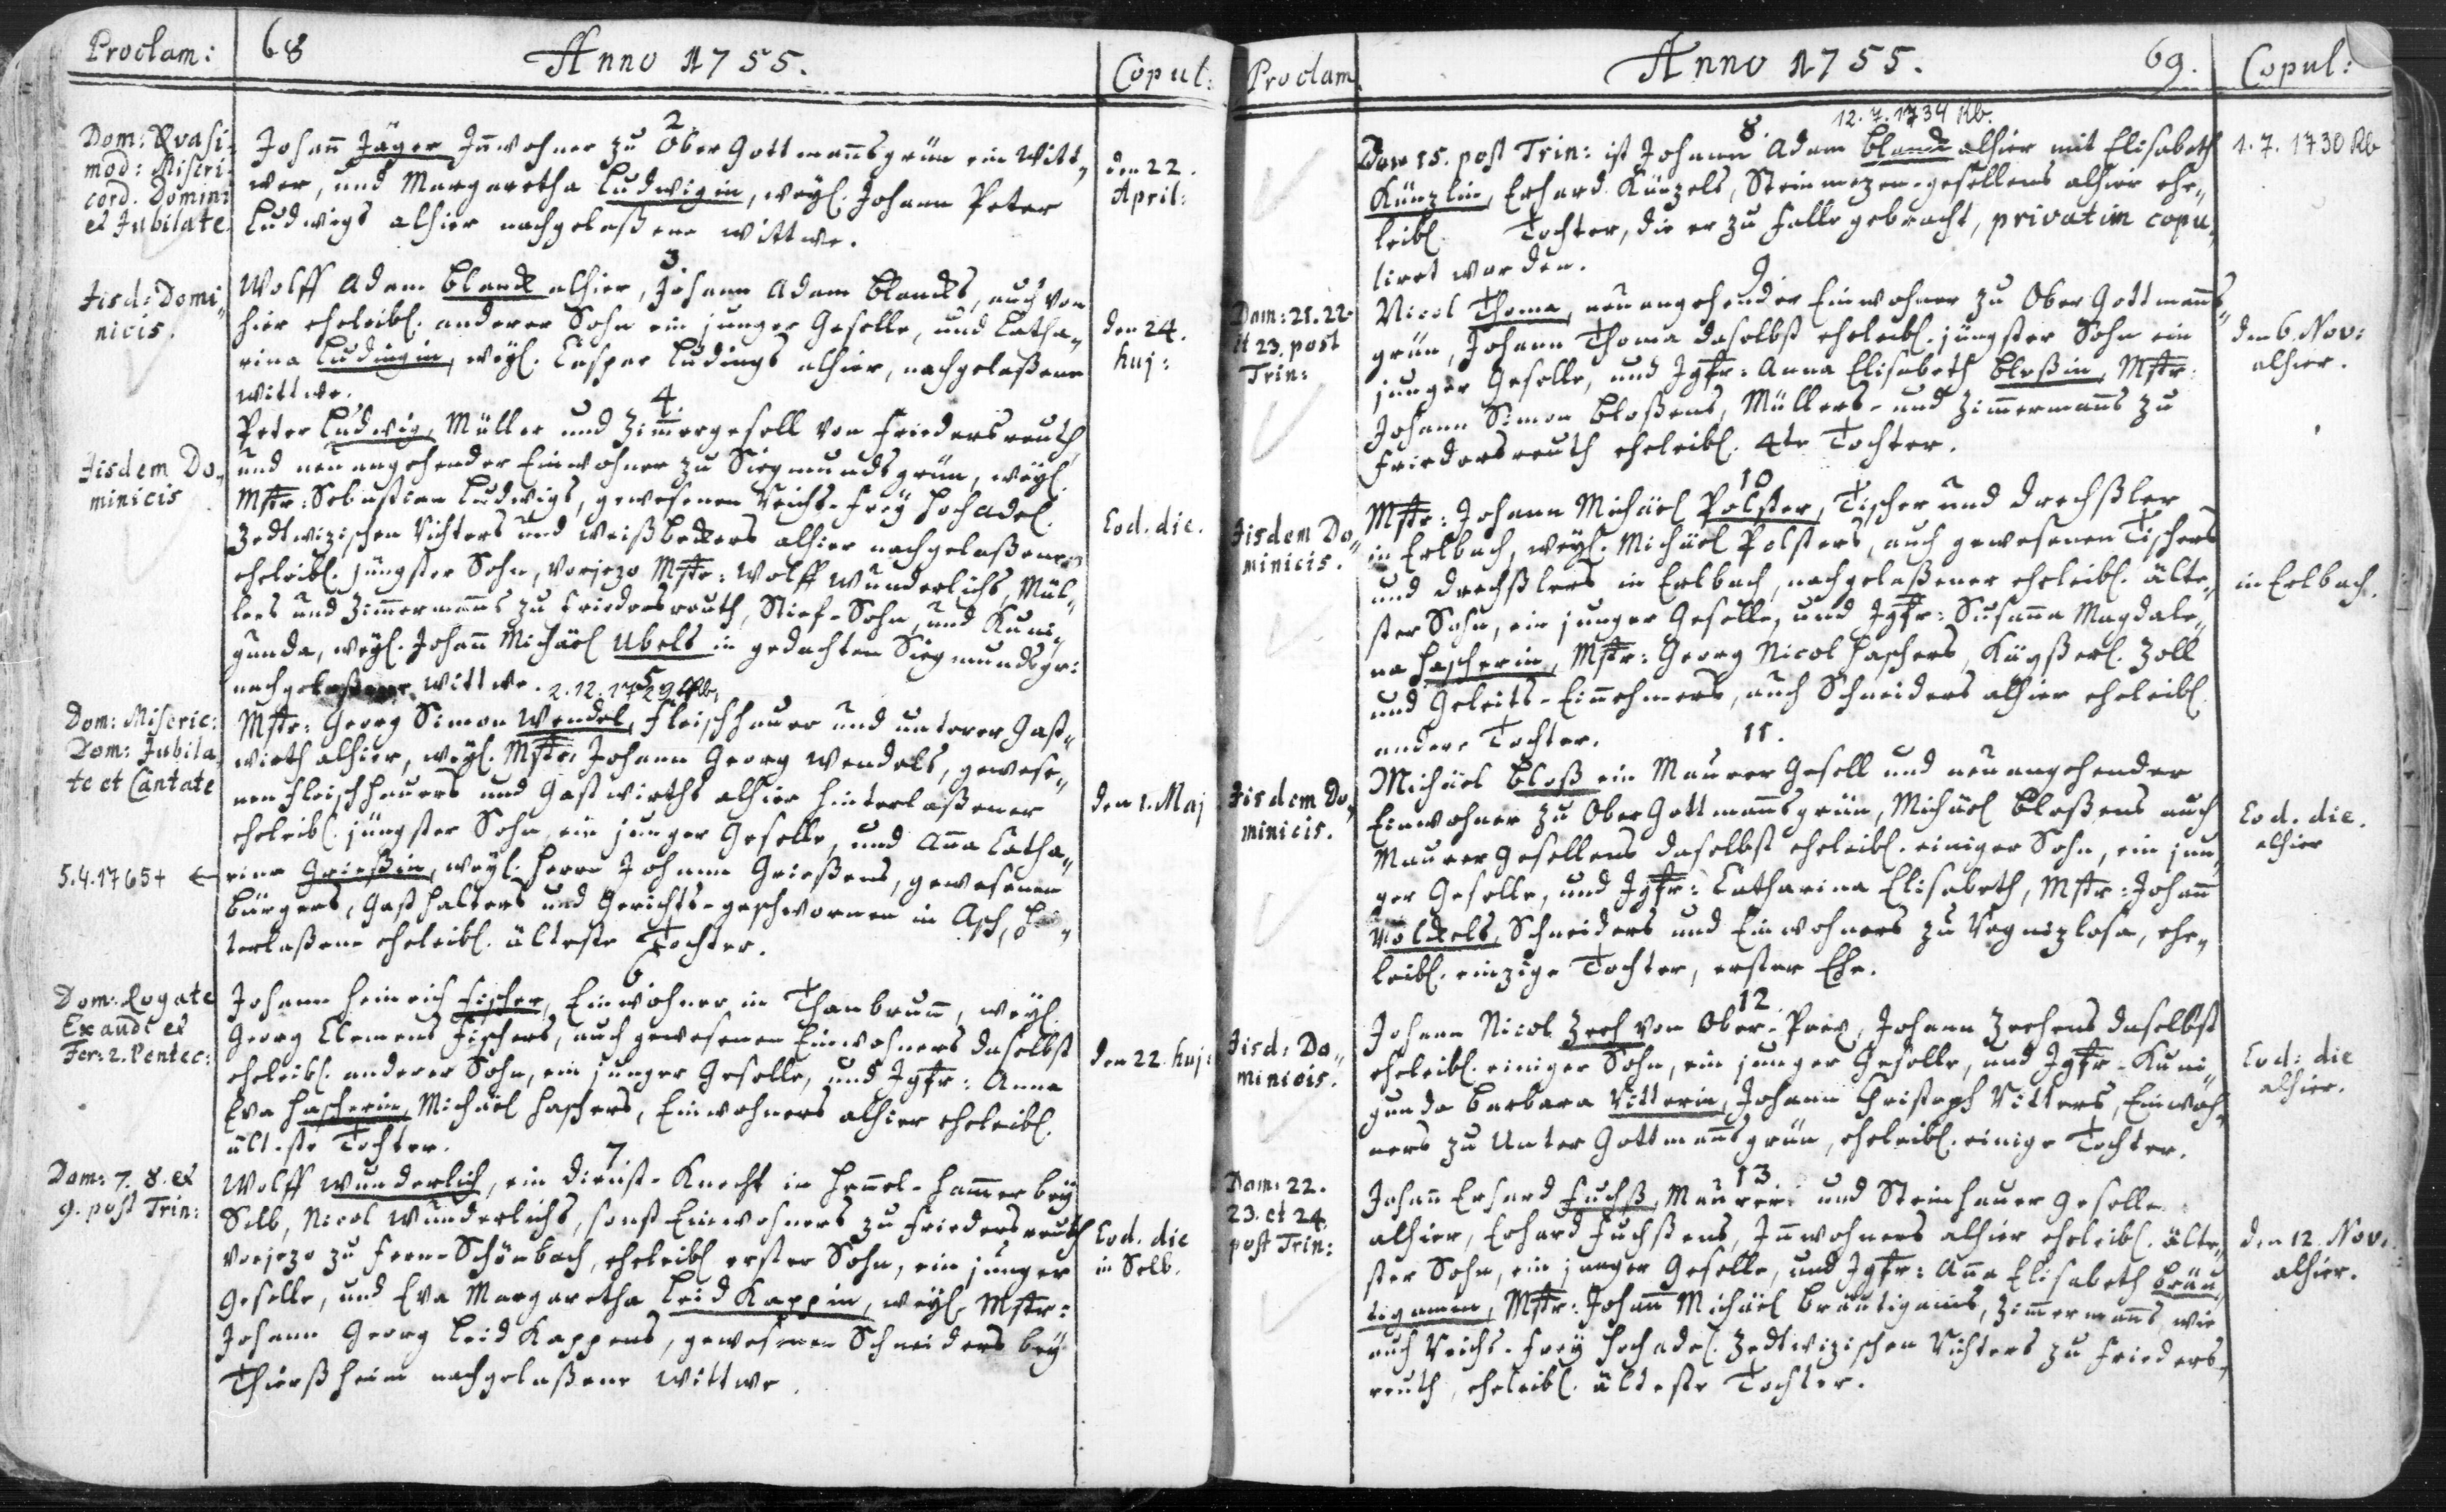 Proclam:
68
Anno 1755.
Copul:
2.
Dom: Qvasi-
mod: Miseri-
cord. Domini
et Jubilate.
Johañ Jäger Jnwohner zu Ober Gottmañsgrün ein Witt-
wer, und Margaretha Ludwigin, weyl. Johann Peter
Ludwigs alhier nachgelaßene Wittwe.
den 22.
April:
3.
Jisd: Domi-
nicis.
Wolff Adam Blanck alhier, Johann Adam Blancks, auch von
hier eheleibl. anderer Sohn ein junger Geselle, und Catha-
rina Ludingin, weyl. Caspar Ludings alhier, nachgelaßene
Wittwe.
den 24.
huj:
4.
Jisdem Do-
minicis
Peter Ludwig, Müller und Zimmergesell von Friedersreuth
und neuangehender Einwohner zu Siegmundsgrün, weyl.
Mstr: Sebastian Ludwigs, gewesenen Reichs-Frey Hochadel.
Zedtwizischen Richters und Weißbeckers alhier nachgelaßener
eheleibl. jüngster Sohn, vorjezo Mstr: Wolff Wunderlichs, Mül-
lers und Zimmermanns zu Friedersreuth, Stief-Sohn, und Kuni-
gunda, weyl. Johañ Michäel Ubels in gedachten Siegmundsgr:
nachgelaßene Wittwe.
Eod. die.
5
2.12.1729 Rb.
Dom: Miseric:
Dom: Jubila-
te et Cantate
Mstr: Georg Simon Wendel, Fleischhauer und unterer Gast-
wirth alhier, weyl. Mstr: Johann Georg Wendels, gewese-
nen Fleischhauers und Gastwirths alhier hinterlaßener
eheleibl. jüngster Sohn, ein junger Geselle, und Aña Catha-
5.4.1765+ ←
rina Grießin, weyl. Herrn Johann Grießens, gewesenen
Bürgers, Gasthalters und Gerichts-geschwornen in Asch, hin-
terlaßene eheleibl. älteste Tochter.
den 1. Maj
6
Dom: Rogate
Exaudi et
Fer: 2. Pentec:
Johann Heinrich Fischer, Einwohner in Thonbrunn, weyl.
Georg Clemens Fischers, auch gewesenen Einwohners daselbst
eheleibl. anderer Sohn, ein junger Geselle, und Jgfr: Anna
Eva Hascherin, Michäel Haschers, Einwohners alhier eheleibl.
älteste Tochter.
den 22. huj:
7
Dom: 7. 8. et
9. post Trin:
Wolff Wunderlich, ein Dienst-Knecht in Heñel-Hammer bey
Selb, Nicol Wunderlichs, sonst Einwohners zu Friedersreuth
vorjezo zu Fern-Schönbach, eheleibl. erster Sohn, ein junger
Geselle, und Eva Margaretha Leid Kappin, weyl. Mstr:
Johann Georg Leid Kappens, gewesenen Schneiders bey
Thiersheim nachgelaßene Wittwe.
Eod. die
in Selb.
Proclam
Anno 1755.
69.
Copul:
12.7.1734 Rb.
8.
Dom 15. post Trin: ist Johann Adam Blanck alhier mit Elisabeth
Künzlin, Erhard Künzels, Steinmezen-gesellens alhier ehe-
leibl. Tochter, die er zu Falle gebracht, privatim copu-
liret worden.
1.7.1730 Rb
9
Dom: 21. 22.
it 23. post
Trin:
Nicol Thoma, neuangehender Einwohner zu Ober Gottmañs-
grün, Johann Thoma daselbst eheleibl. jüngster Sohn ein
junger Geselle, und Jgfr: Anna Elisabeth Bloßin, Mstr:
Johann Simon Bloßens, Müllers- und Zimmermanns zu
Friedersreuth eheleibl. 4te Tochter.
den 6. Nov:
alhier.
10
Jisdem Do-
minicis.
Mstr: Johann Michäel Polster, Tischer und Drechßler
in Erlbach, weyl. Michäel Polsters, auch gewesenen Tischers
und Drechßlers in Erlbach, nachgelaßener eheleibl. älte-
ster Sohn, ein junger Geselle, und Jgfr: Susanna Magdale-
na Hascherin, Mstr: Georg Nicol Haschers, Kayßerl. Zoll
und Geleits-Einnehmers, auch Schneiders alhier eheleibl.
andere Tochter.
in Erlbach.
11.
Jisdem Do-
minicis.
Michäel Bloß ein Maurer Gesell und neuangehender
Einwohner zu Ober Gottmañsgrün, Michäel Bloßens auch
Maurer Gesellens daselbst eheleibl. einiger Sohn, ein jun-
ger Geselle, und Jgfr: Catharina Elisabeth, Mstr: Johañ
Völckels, Schneiders und Einwohners zu Regnizlosa, ehe-
leibl. einzige Tochter, erster Ehe.
Eod. die.
alhier
12
Jisd: Do-
minicis.
Johann Nicol Zech von Ober-Prex, Johann Zechens daselbst
eheleibl. einiger Sohn, ein junger Geselle, und Jgfr. Kuni-
gunda Barbara Ritterin, Johann Christoph Ritters, Einwoh-
ners zu Unter Gottmañsgrün, eheleibl. einige Tochter.
Eod: die
alhier.
13
Dom: 22.
23. et 24.
post Trin:
Johañ Erhard Fuchß, Maurer und Steinhauer Geselle
alhier, Erhard Fuchßens, Jnwohners alhier eheleibl. älte-
ster Sohn, ein junger Geselle, und Jgfr: Aña Elisabeth Bräu-
tigamin, Mstr: Johañ Michäel Bräutigams, Zimmermañs wie
auch Reichs-Frey Hochadel. Zedtwizischen Richters zu Frieders-
reuth, eheleibl. älteste Tochter.
den 12. Nov:
alhier.